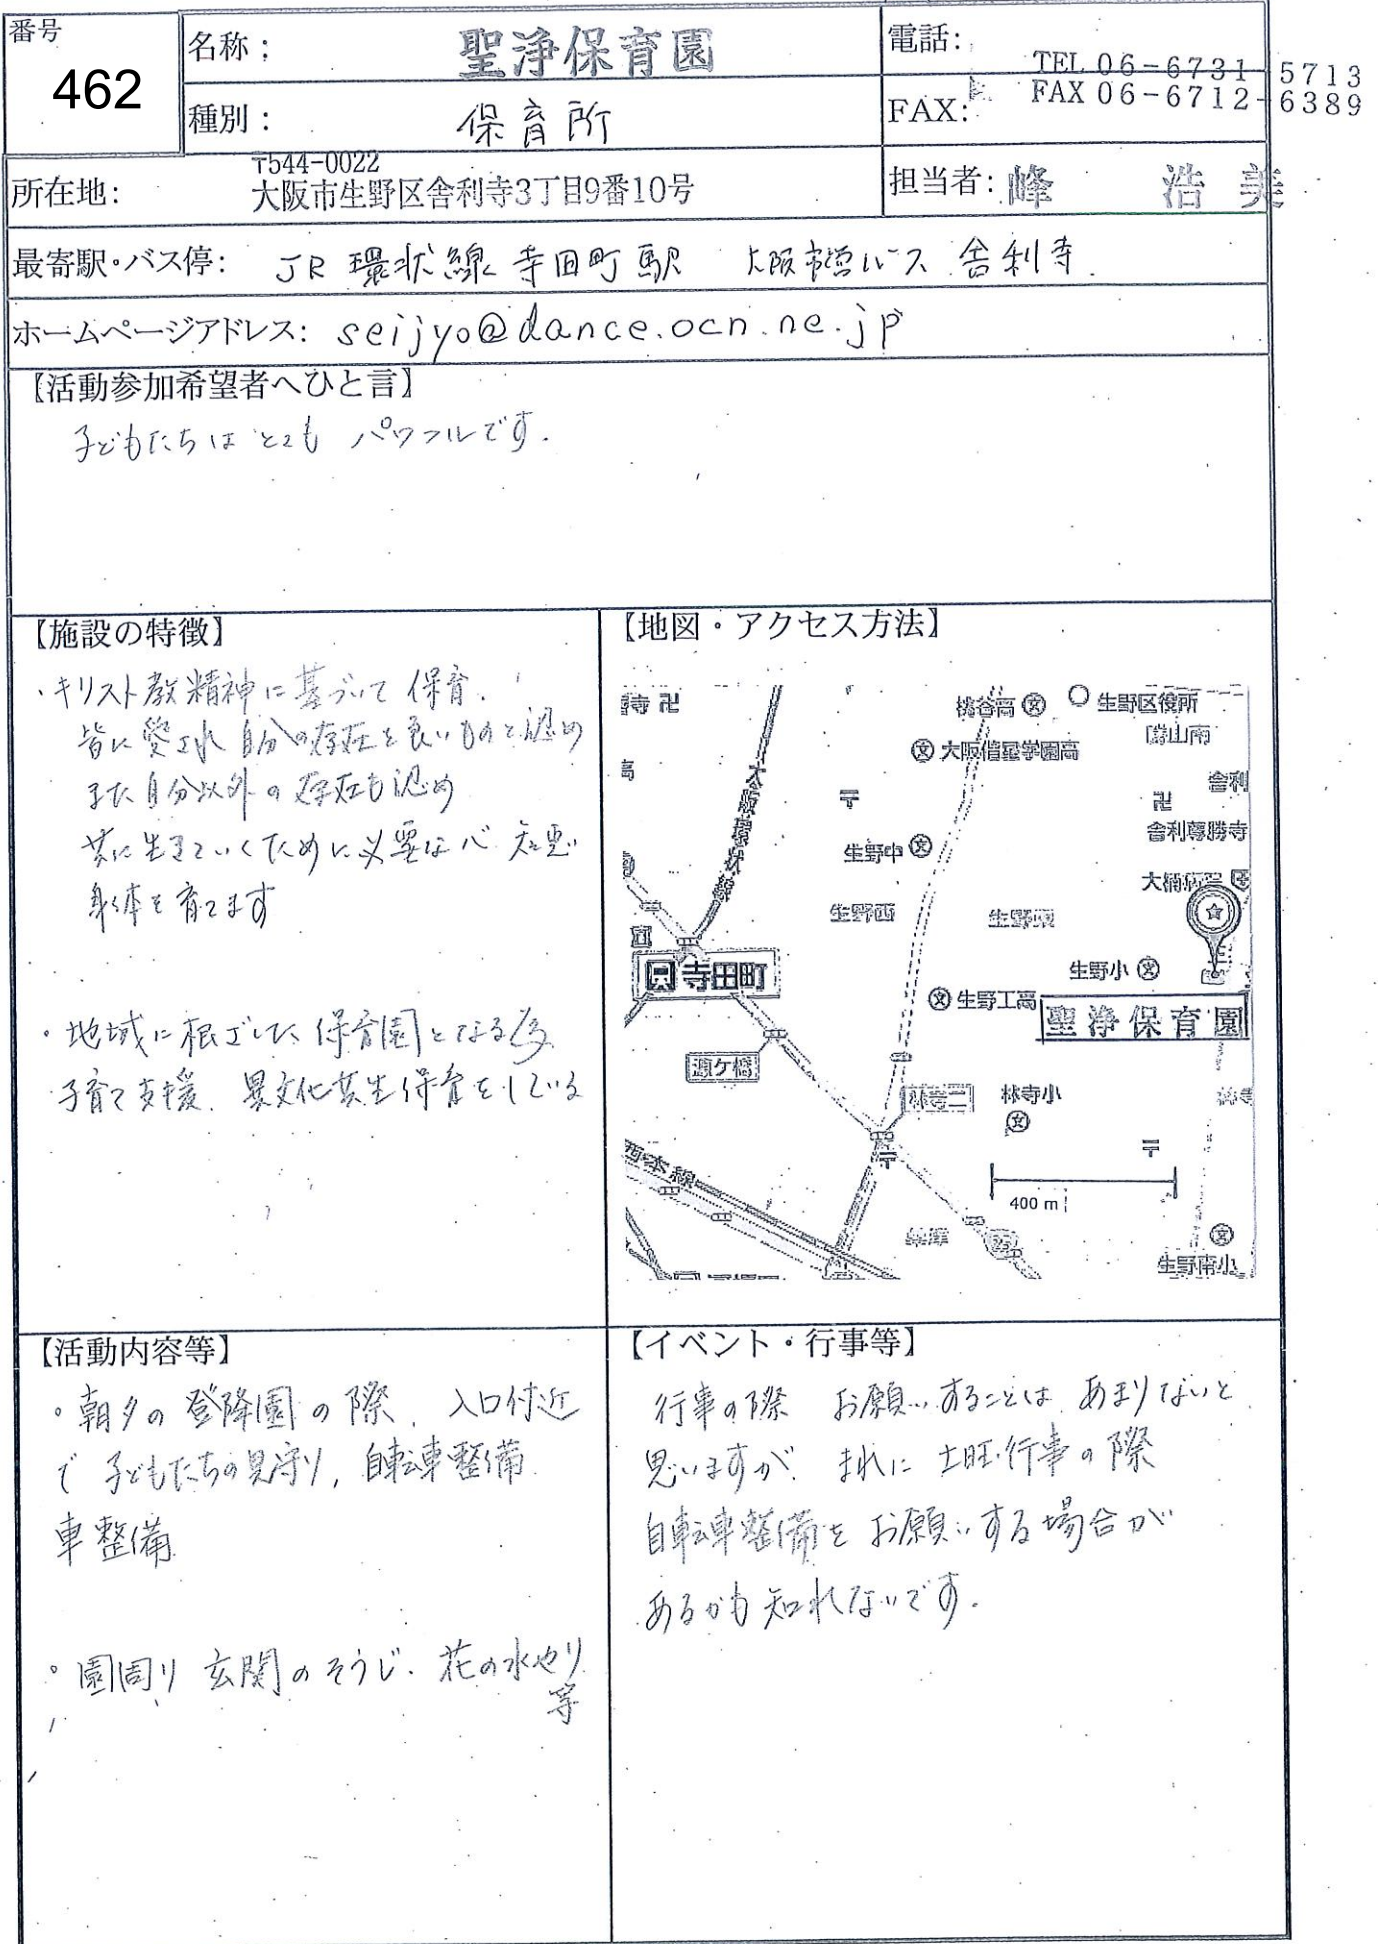 番号
462
名称： 聖浄保育園
電話： TEL 06-6731-5713
種別： 保育所
FAX： FAX 06-6712-6389
〒544-0022
所在地： 大阪市生野区舎利寺3丁目9番10号
担当者： 峰 浩美
最寄駅・バス停： JR 環状線 寺田町駅 大阪市営バス 舎利寺
ホームページアドレス： seijyo@dance.ocn.ne.jp
【活動参加希望者へひと言】
子どもたちはとても パワフルです.
【施設の特徴】
・キリスト教精神に基づいて 保育.
皆に愛され 自分の存在を良いものと認め
また自分以外の存在も認め
共に生きていくために必要な心 知恵
身体を育てます
・地域に根ざした 保育園となる為
子育て支援. 異文化共生保育をしている
【地図・アクセス方法】
寺 卍
桃谷高 文
生野区役所
勝山南
文 大阪信愛学園高
高
大阪環状線
〒
卍
舎利
舎利尊勝寺
生野中 文
生野西
生野東
生野小 文
寺田町
文 生野工高
聖浄保育園
源ケ橋
林寺二
林寺小
文
林寺
西本線
〒
〒
400 m
25
文
生野南小
【活動内容等】
・朝夕の 登降園の際. 入口付近
で 子どもたちの見守り, 自転車整備
車整備
・園周り 玄関のそうじ. 花の水やり
等
【イベント・行事等】
行事の際 お願いすることは あまりないと
思いますが. まれに 土曜行事の際
自転車整備を お願いする場合が
あるかも知れないです.